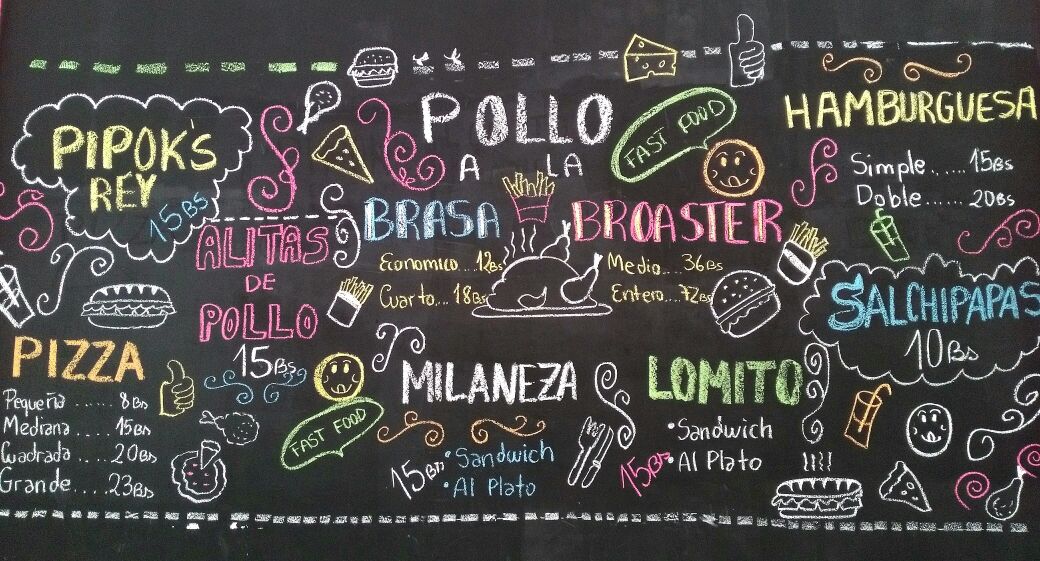 PIPOK'S
REY
15Bs
ALITAS
DE
POLLO
15Bs
PIZZA
Pequeña ...... 8Bs
Medrana .... 15Bs
Cuadrada .... 20Bs
Grande .... 23Bs
POLLO
A LA
BRASA
BROASTER
Economico...12Bs
Cuarto...18Bs
Medio....36Bs
Entero....72Bs
FAST FOOD
FAST FOOD
MILANEZA
15Bs
•Sandwich
•Al Plato
LOMITO
15Bs
•Sandwich
•Al Plato
HAMBURGUESA
Simple......15Bs
Doble......20Bs
SALCHIPAPAS
10Bs